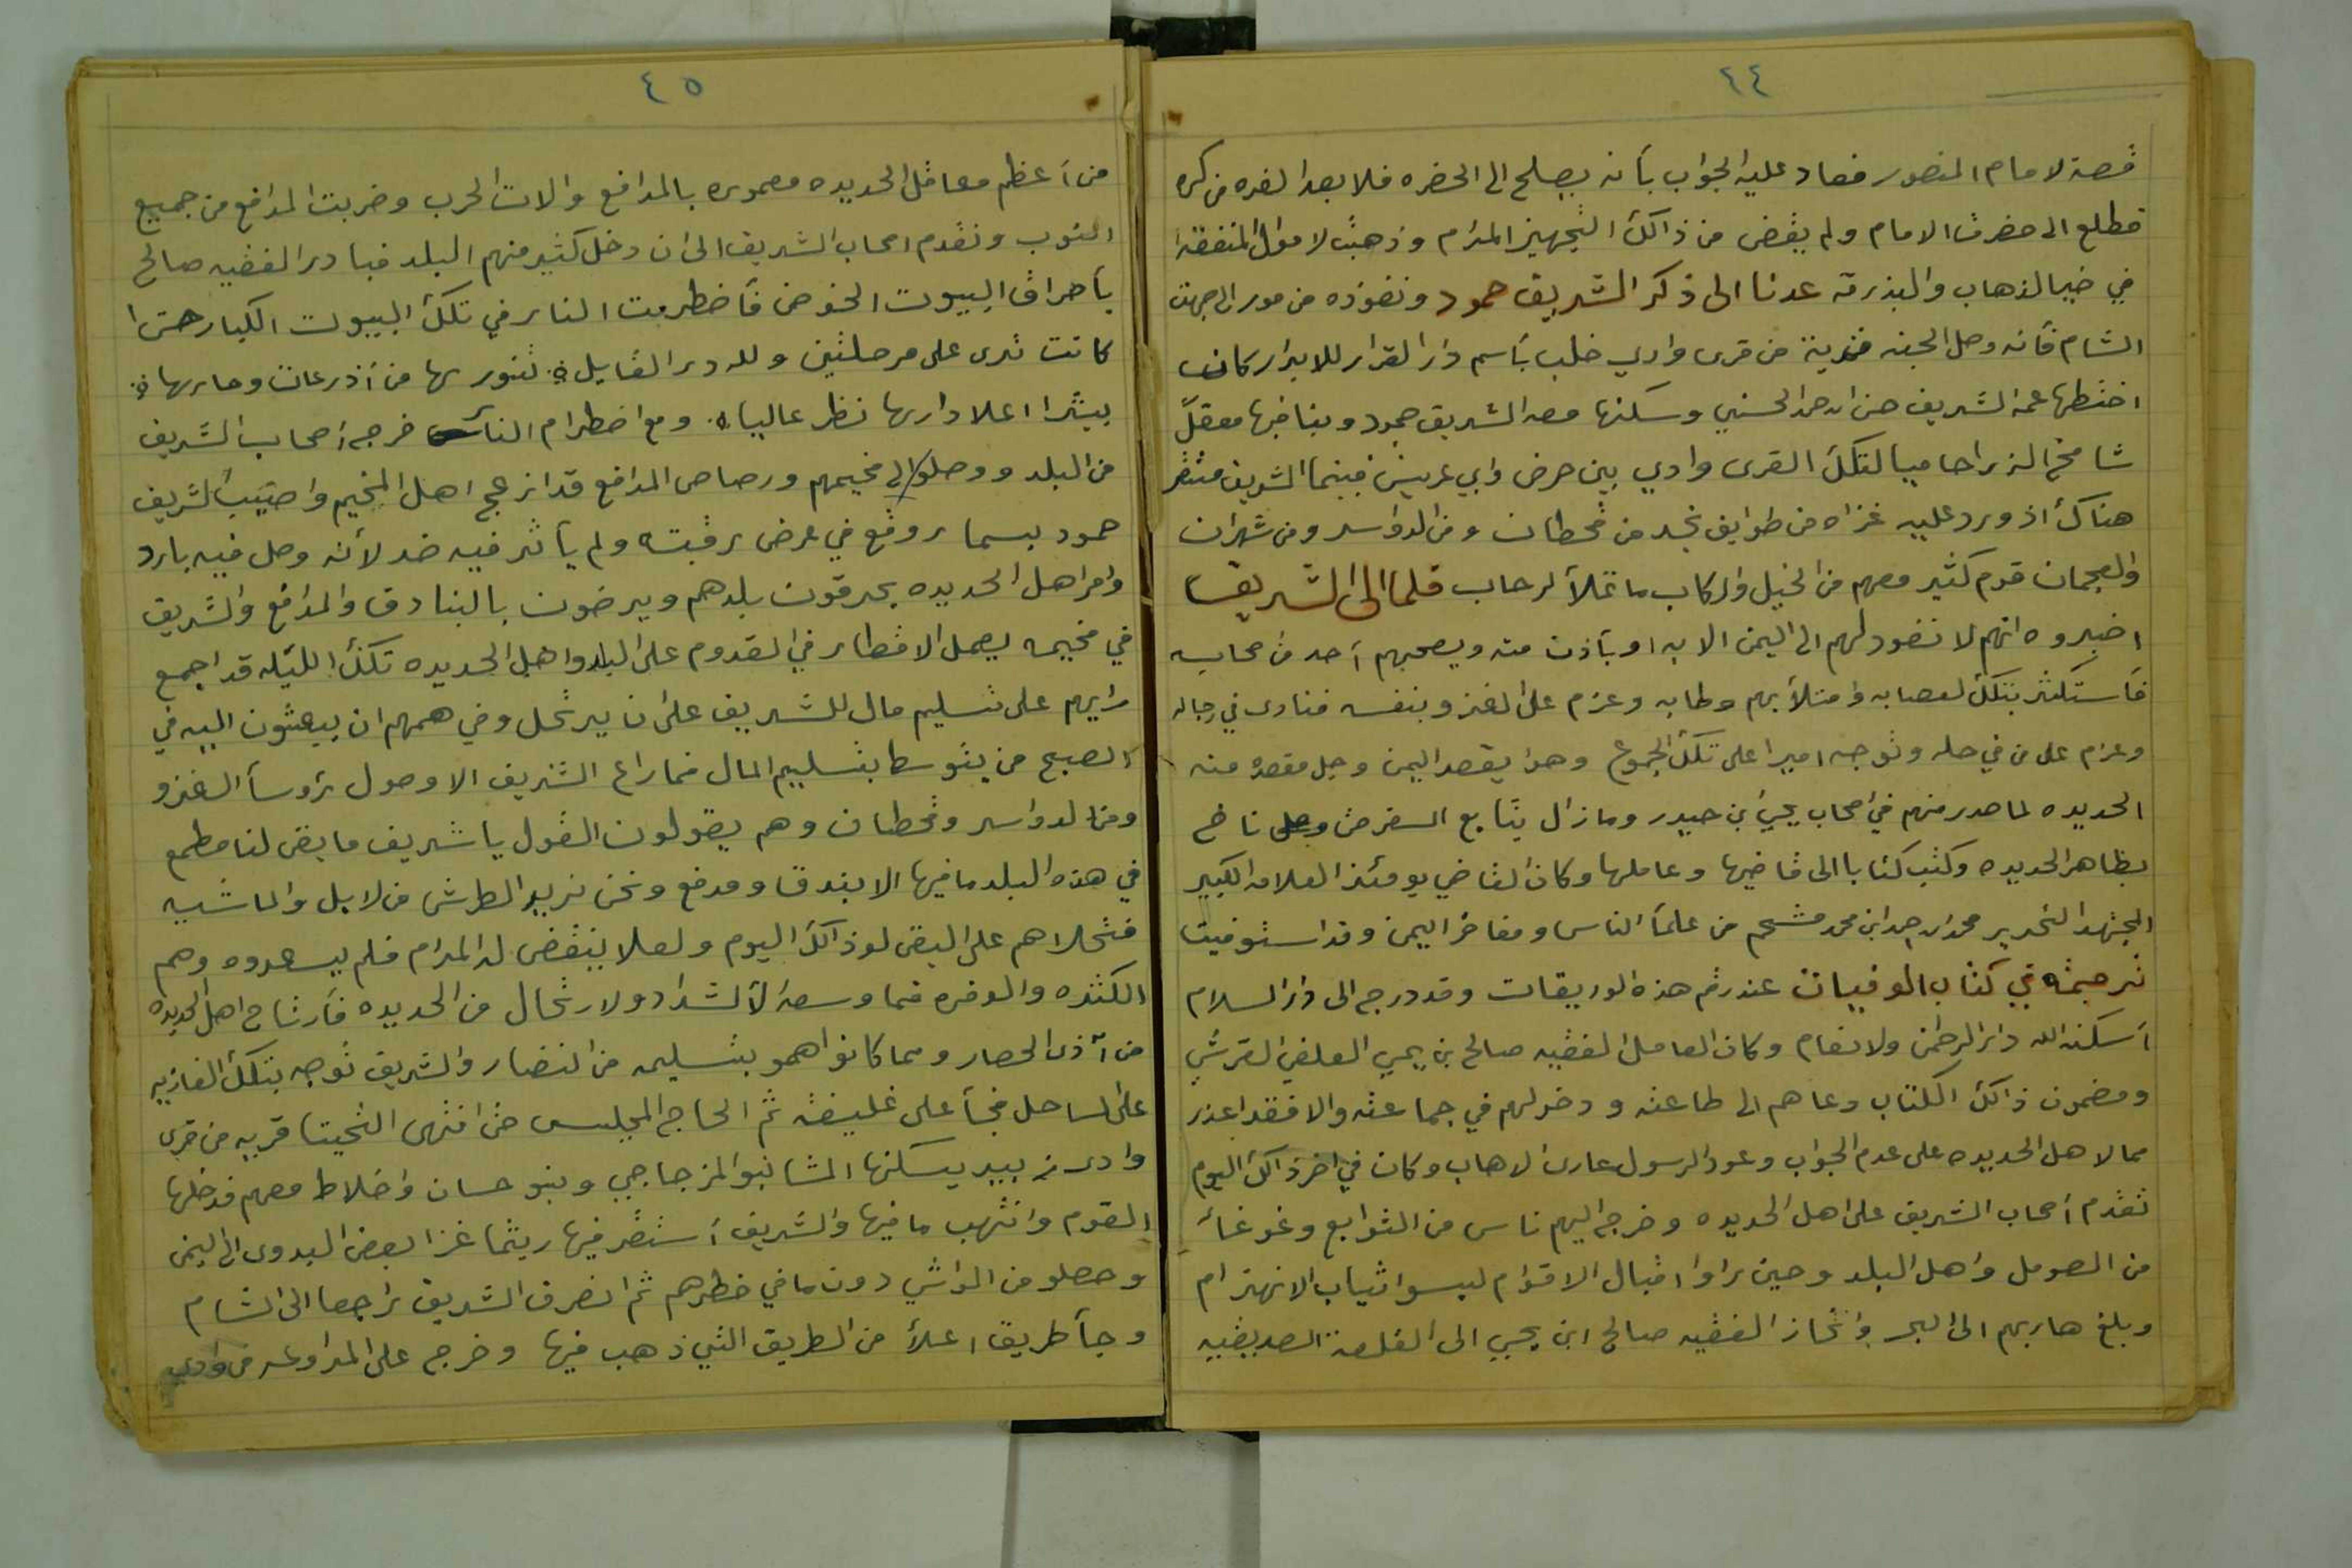 ٤٤
قصة لامام المنصور فعاد عليه الجواب بأنه يصلح الى الحضره فلا بعد الفره من كره
فطلع الى حضرت الامام ولم يقض من ذالك التجهيز المرام وذهبت لاموال المنفقه
في ضيا لذهاب والبذرقه عدنا الى ذكر الشريف حمود ونفوذه من مور الى جهت
الشام فأنه وصل الجبنه قرية من قرى وادي خلب بأسم دار القرار للابرار كان
اختطها عمه الشريف حسن ابن احمد الحسني وسكنها معه الشريف حمود وبنا فيها معقلً
شامخ الذرا حاميا لتكك القرى وادي بين حرض وابي عريش فبينما الشريف متنقر
هناك اذ ورد عليه غزاه من طوايف نجد من قحطان ومن الدواسر ومن شهران
والعجمان قوم كثير معهم من الخيل والركاب ما تملأ الرحاب فلما الى الشريف
اخبروه انهم لا نفود لهم الى اليمن الا به او بأذن منه ويصحبهم أحد من صحابه
فأستكثر بتلك لعصابه وامتلأ بهم وطابه وعزم على الغزو بنفسه فنادى في رجاله
وعزم على من في حله وتوجه اميرا على تلك الجموع وهو يقصد اليمن وجل مقصده منه
الحديده لما صدر منهم في اصحاب يحيى ابن حيدر ومازال يتابع السفر حتى وصل ناخ
بظاهر الحديده وكتب كتابا الى قاضيها وعاملها وكان القاضي يومئذ العلامه الكبير
المجتهد النحرير محمد ابن احمد ابن محمد مشحم من علمأ الناس ومفاخر اليمن وقد استوفيت
ترجمته في كتاب الوفيات عند رقم هذه الوريقات وقد درج الى دار السلام
أسكنه الله دار الرحمن ولانعام وكان العامل الفقيه صالح بن يحي العلفي القرشي
ومضمون ذالك الكتاب دعاهم الى طاعته ودخولهم في جماعته والا فقد اعذر
ممالا هل الحديده على عدم الجواب وعود الرسول عارى الاهاب وكان في اخر ذالك اليوم
تقدم أصحاب الشريف على اهل الحديده وخرج اليهم ناس من التوابع وغوغأ
من الصومل واهل البلد وحين راوا اقبال الاقوام لبسوا ثياب الانهزام
وبلغ هاربهم الى البحر وانحاز الفقيه صالح ابن يحيى الى القلعة الصديقيه
٤٥
من أعظم معاقل الحديده معموره بالمدافع والات الحرب وضربت المدافع من جميع
النوب وتقدم اصحاب الشريف الى ان دخل كثير منهم البلد فبادر الفقيه صالح
بأحراق البيوت الخوص فأضطرمت النار في تلك البيوت الكبار حتى ا
كانت ترى على مرحلتين ولله در القايل تنورتها من أذرعات ودارها
بيثرا اعلا دارها نظر عاليا ومع اضطرام النار خرج أصحاب الشريف
من البلد ووصلو الى مخيمهم ورصاص المدافع قد ازعج اهل المخيم واصيب الشريف
حمود بسمار وقع في عرض رقبته ولم يأثر فيه ضر لأنه وصل فيه بارد
وامر اهل الحديده يحرقون بلدهم ويرضون بالبنادق والمدافع والشريف
في مخيمه يعمل الافطار في القدوم على البلد واهل الحديده تكك الليله قد اجمع
رايهم على تسليم مال للشريف على ان يرتحل وفي همهم ان يبعثون اليه في
الصبح من يتوسط بتسليم المال فما راع الشريف الا وصول رؤسأ الغزو
ومن لدواسر وقحطان وهم يقولون القول يا شريف ما بقى لنا مطمع
في هذه البلد ما فيها الا بندق ومدفع ونحن نريد الطرش من لابل والماشيه
فتحلاهم على البقى لو ذالك اليوم ولعلا ينقض له المرام فلم يسعدوه وهم
الكثره والوفره فما وسعه الا الشداد ولارتحال من الحديده فأرتاح اهل الحديده
من آذى الحصار ومما كانوا همو بتسليمه من النضار والشريف توجه بتلك الغازيه
على لساحل فجأ على غليفقه ثم الحاج المجليس حتى انتهى التحيتا قريه من قرى
وادى زبيد يسكنها المشائخ بنو المزجاجي وبنو حسان واخلاط معهم فدخلها
القوم وانتهب ما فيها والشريف أستقر فيها ريثما غزا بعض البدوى الى اليمن
وحصلو من المواشي دون ما في خطرهم ثم انصرف الشريف راجعا الى الشام
وجأ طريق اعلأ من الطريق التي ذهب فيها وخرج على المداوعه من وادي